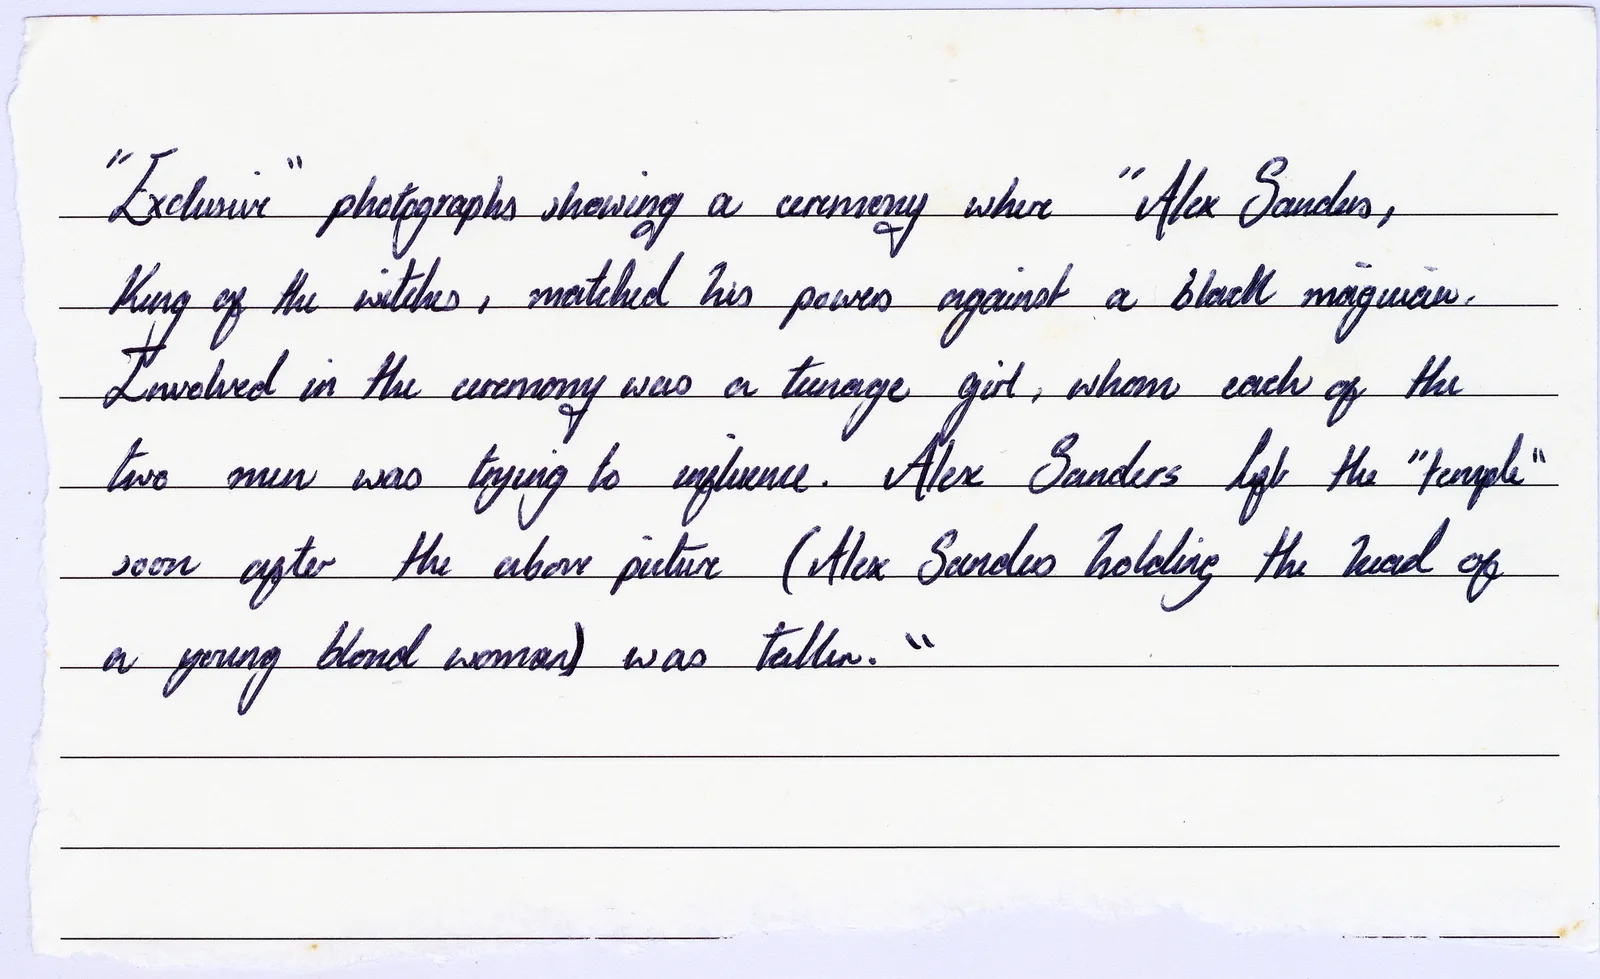 "Exclusive" photographs showing a ceremony where "Alex Sanders,
King of the witches, matched his powers against a black magician.
Involved in the ceremony was a teenage girl, whom each of the
two men was trying to influence. Alex Sanders left the "temple"
soon after the above picture (Alex Sanders holding the head of
a young blond woman) was taken."